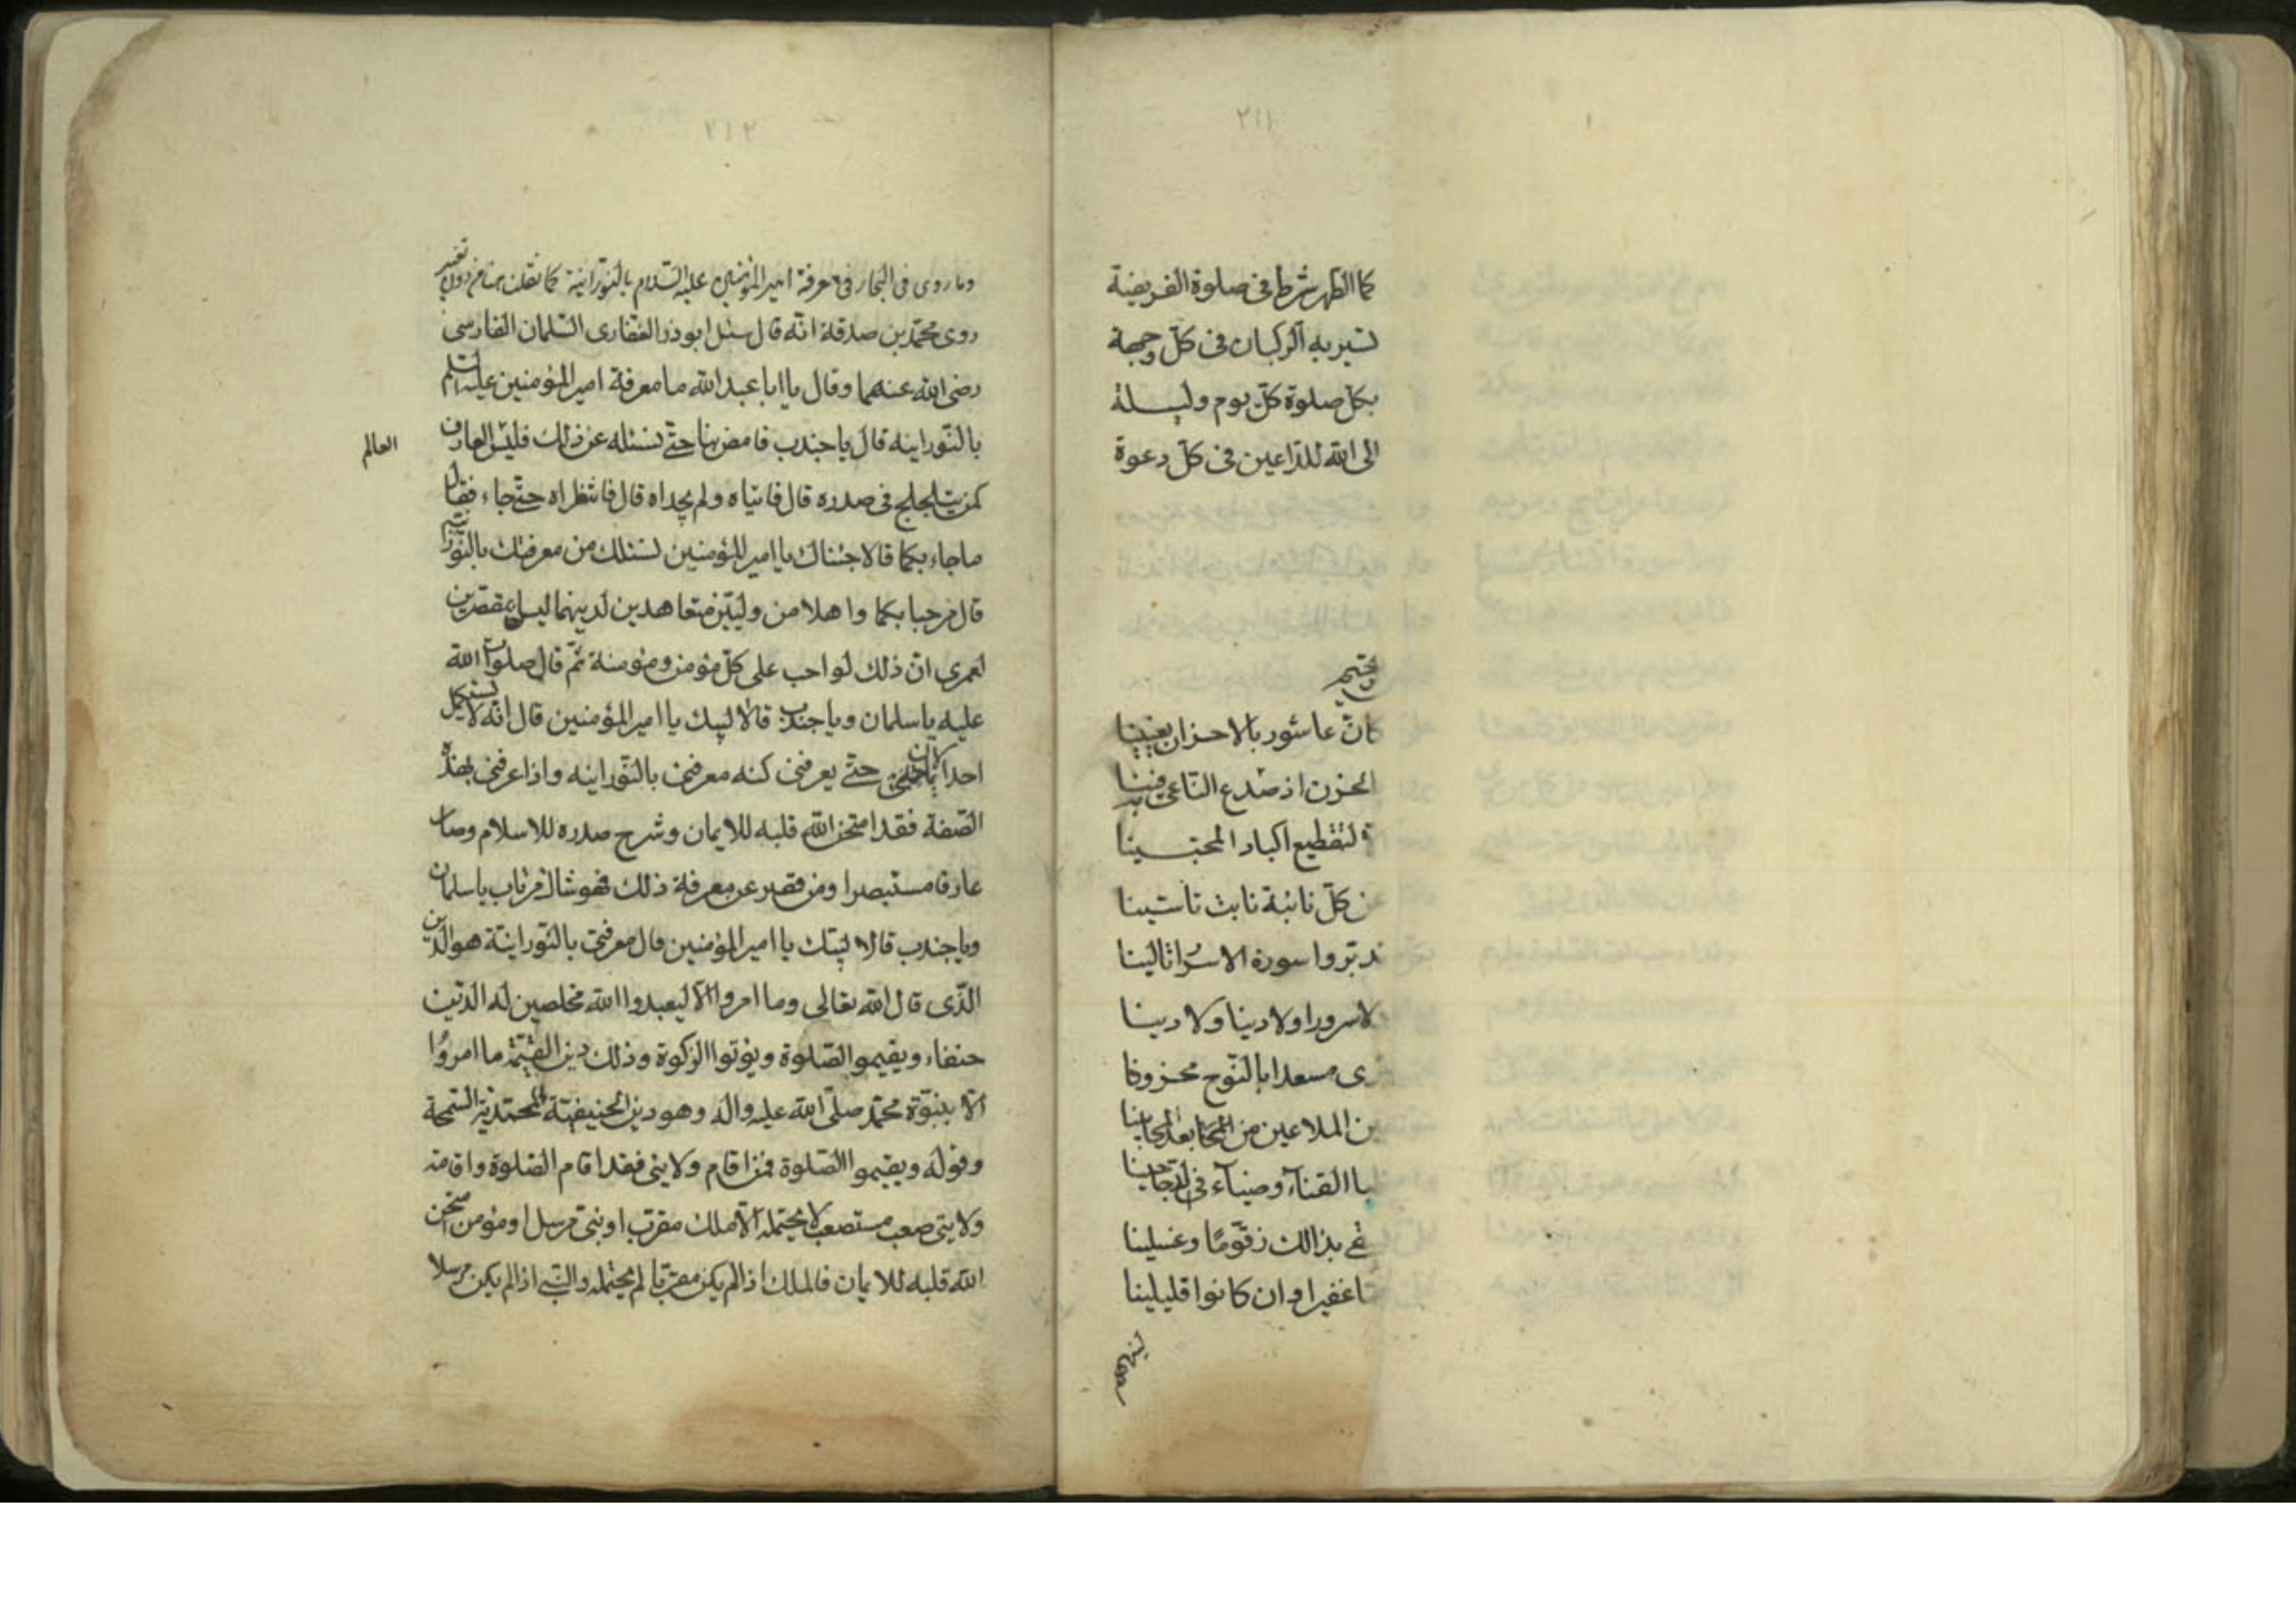 ٢١١
كما الطهر شرط فى صلوة الفريضة
تسير به الركبان فى كلّ وجهة
بكل صلوة كلّ يوم وليسلة
الى الله للدّاعين فى كلّ دعوة
كانّ عاشور بالاحزان يعنينا
الحزن اذ صدع النّاعى فينا
لتقطيع اكباد المحبّسينا
من كلّ نائبة نابت تأسّينا
تدبّروا سورة الاسرا تالينا
لا سرورا ولا دينا ولا دينا
مسعدا بالنّوح محزونا
الملاعين من
القناء وضياء فى
بذالك زقّومًا وغسلينا
غفيرا وان كانوا قليلينا
٢١٢
وما روى فى البحار فى معرفة امير المؤمنين عليه السّلام بالنّورانية كما نقلت تغيير
روى محمّد بن صدقة انّه قال سئل ابوذر الغفّارى السّلمان الفارسى
رضى الله عنهما وقال يا ابا عبد الله ما معرفة امير المؤمنين عليه السّلم
بالنّورانيه قال يا جندب فامض بنا حتّى نسئله عن ذلك فليس العارف
العالم
كمن يتلجلج فى صدره قال فاتياه ولم يجداه قال فانتظراه حتّى جاء فقال
ما جاء بكما قالا جئناك يا امير المؤمنين نسئلك من معرفتك بالنّورانية
قال مرحبا بكما واهلا من وليّين متعاهدين لدينهما ليسا بمقصّرين
لعمرى انّ ذلك لواجب على كلّ مؤمن ومؤمنة ثمّ قال صلوات الله
عليه يا سلمان ويا جندب قالا لبيك يا امير المؤمنين قال انّه لا يستكمل
احد الايمان حتّى يعرفنى كنه معرفتى بالنّورانيه واذا عرفنى بهذه
الصّفة فقد امتحن الله قلبه للايمان وشرح صدره للاسلام وصار
عارفا مستبصرا ومن قصر عن معرفة ذلك فهو شاك مرتاب يا سلمان
ويا جندب قالا لبيّك يا امير المؤمنين قال معرفتى بالنّورانيّة هو الدّين
الذّى قال الله تعالى وما امروا الّا ليعبدوا الله مخلصين له الدّين
حنفاء ويقيموا الصّلوة ويؤتوا الزّكوة وذلك دين القيّمة ما امروا
الّا بنبوّة محمّد صلّى الله عليه واله وهو دين الحنيفيّة المحمّديّة السّمحة
وقوله ويقيموا الصّلوة فمن اقام ولايتى فقد اقام الصّلوة واقامة
ولايتى صعب مستصعب لا يحتمله الّا ملك مقرّب او نبىّ مرسل او مؤمن امتحن
الله قلبه للايمان فالملك اذا لم يكن مقربا لم يحتمله والنّبى اذا لم يكن مرسلا